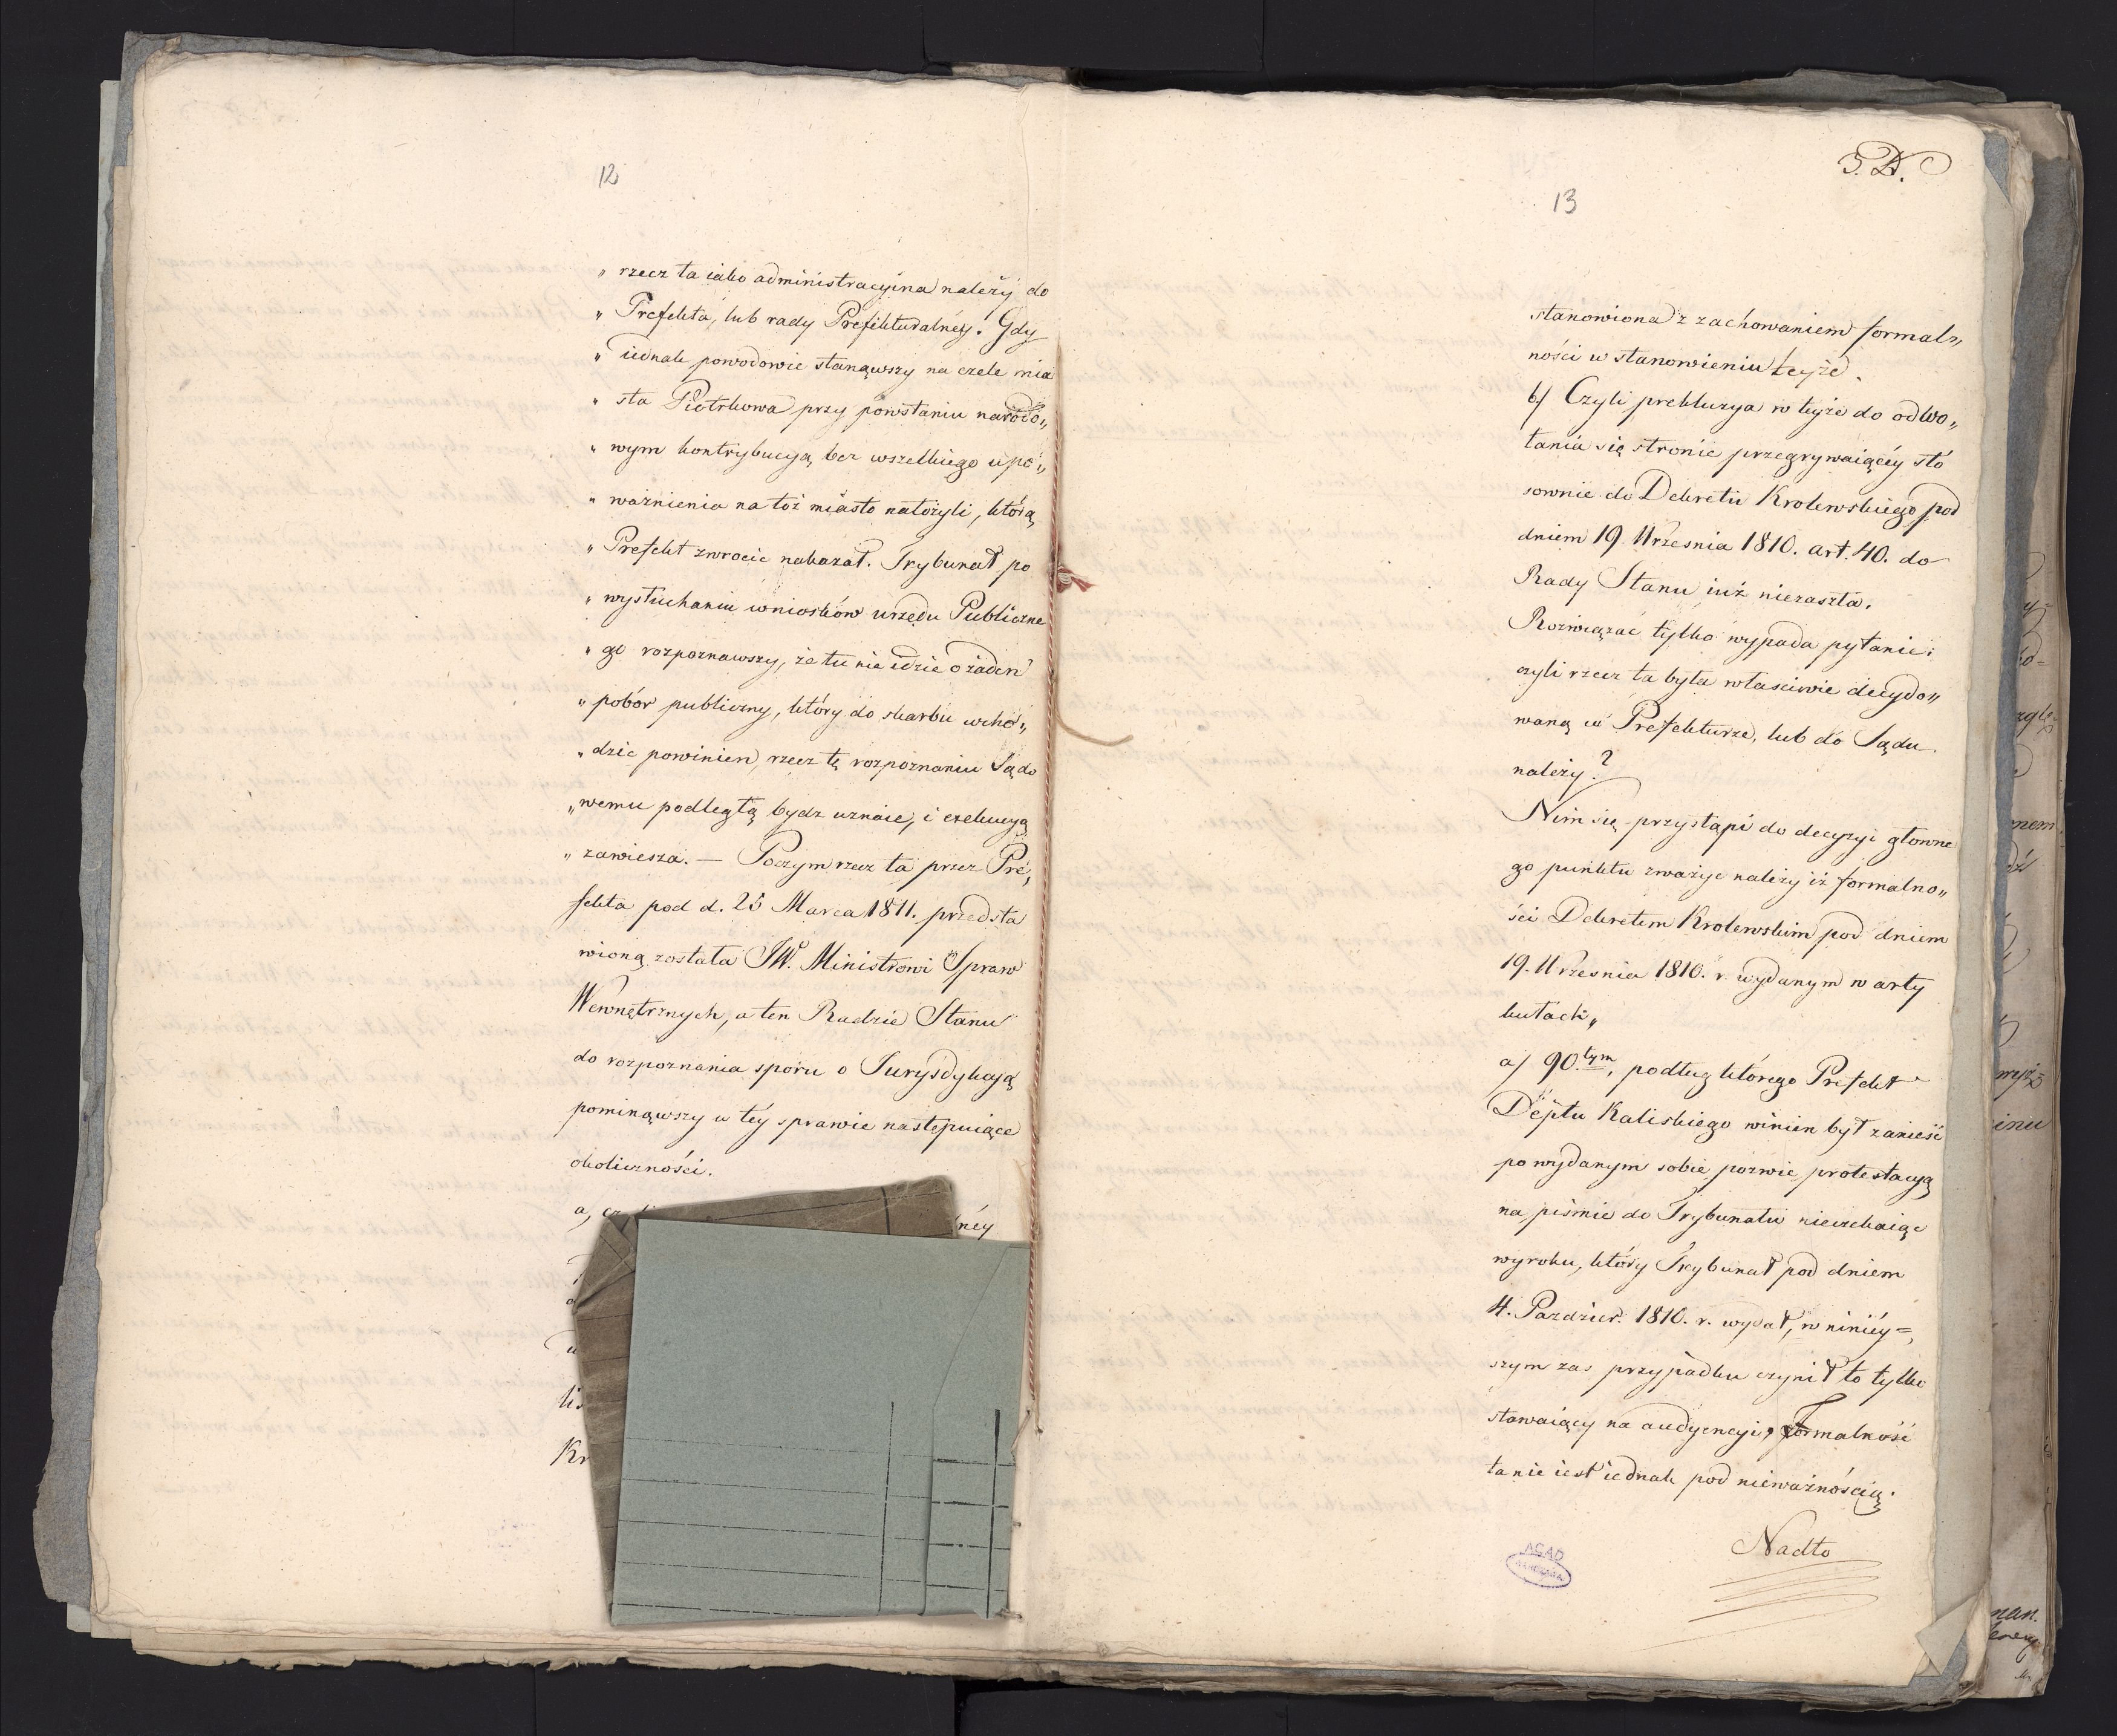 12
„ rzecz ta iako administracyina należy do
„ Prefekta, lub rady Prefekturalnéy. Gdy
„ iednak powodowie stanąwszy na czele mia
„ sta Piotrkowa przy powstaniu narodo„
„ wym kontrybucyą bez wszelkiego upo„
„ ważnienia na toż miasto nałożyli, którą
„ Prefekt zwrocic nakazał. Trybunał po
„ wysłuchaniu wniosków urzędu Publiczne
„ go rozpoznawszy, że tu nie idzie o żaden
„ pobór publiczny, który do skarbu wcho„
„ dzic powinien, rzecz tę rozpoznaniu Sądo
„ wemu podległą bydz uznaie, i exekucyą
„ zawiesza. — Poczym rzecz ta przez Pre„
fekta pod d. 25 Marca 1811. przedsta
wioną została JW. Ministrowi Spraw
Wewnętrznych, a ten Radzie Stanu
do rozpoznania sporu o Jurysdykcyą
pominąwszy w téy sprawie następuiące
okoliczności.
a,
néy
Kr
13
stanowiona z zachowaniem formal„
ności w stanowieniu teyże.
b/ Czyli prekluzya w teyże do odwo„
łania się stronie przegrywaiącéy sto
sownie do Dekretu Krolewskiego pod
dniem 19 Września 1810. art. 40. do
Rady Stanu iuż niezaszła.
Rozwiązać tylko wypada pytanie:
czyli rzecz ta była własciwie decydo„
waną w Prefekturze, lub do Sądu
należy?
Nim się przystąpi do decyzyi głowne
go punktu zważyc należy iż formalno„
ści Dekretem Krolewskim pod dniem
19. Września 1810. r. wydanym w arty
kułach„
a/ 90.tym, podług którego Prefekt
Deptu Kaliskiego winien był zanieść
po wydanym sobie pozwie protestacyą
na piśmie do Trybunału nieczekaiąc
wyroku, który Trybunał pod dniem
4. Pazdzier. 1810. r. wydał, w niniéy=
szym zas przypadku czynił to tylko
stawaiący na audyencyi, Formalność
ta nie iest iednak pod nieważnością.
Nadto
AGAD